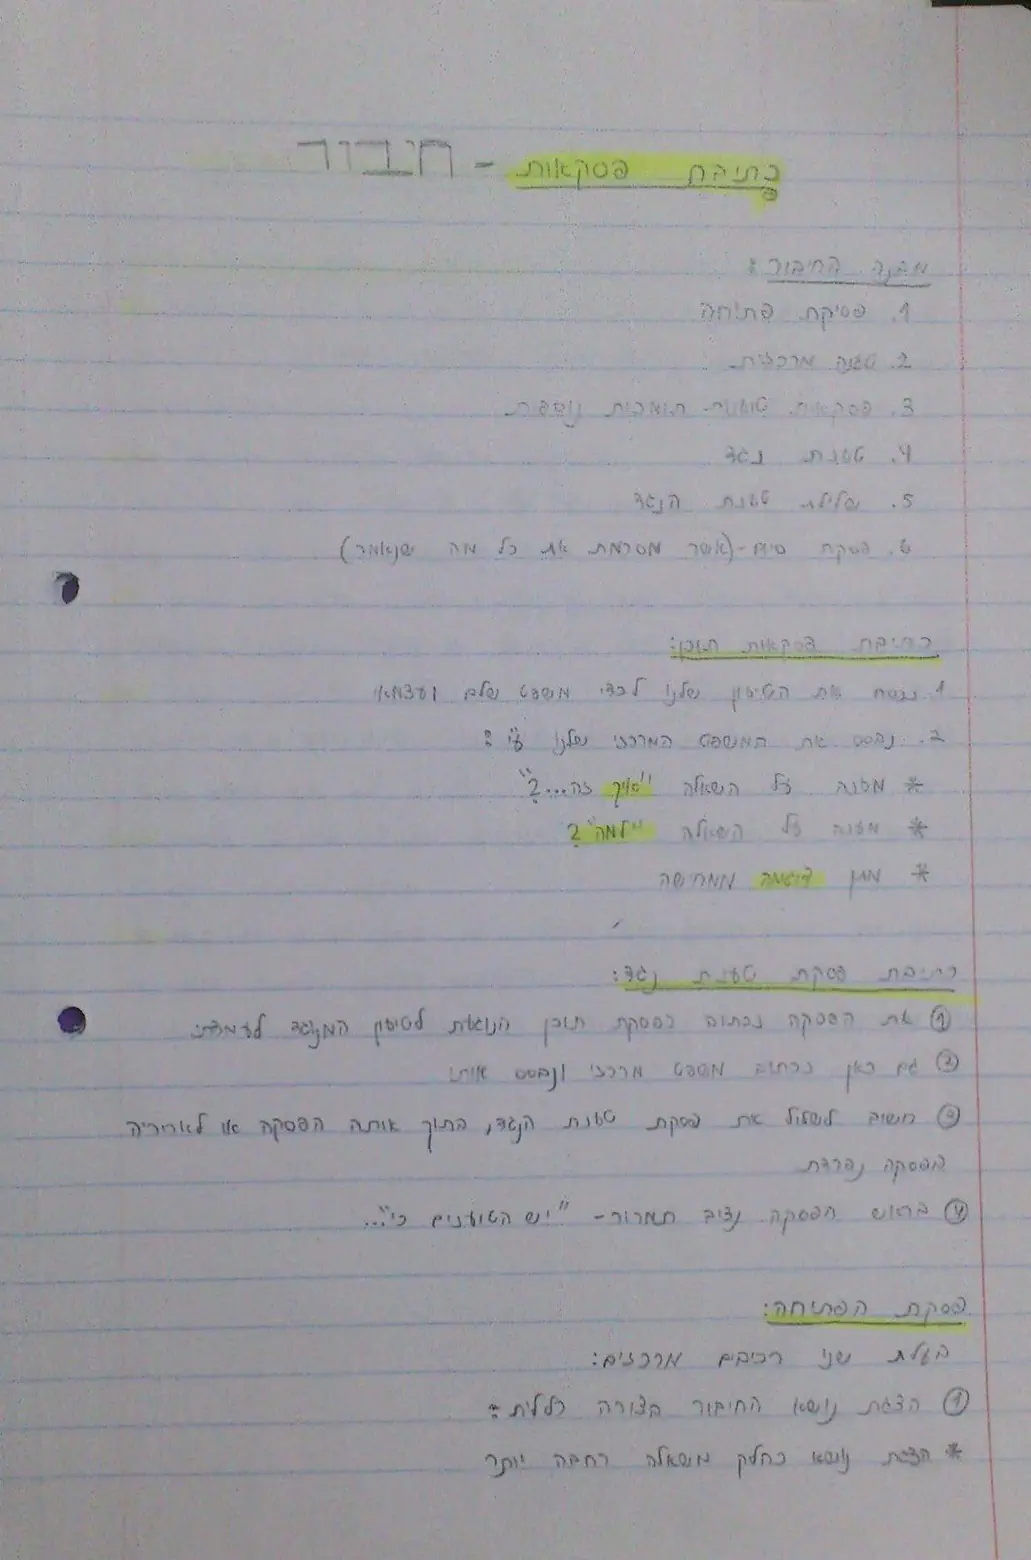 כתיבת פסקאות - חיבור
מבנה החיבור:
1. פסיקת פתיחה
2. טענה מרכזית
3. פסקאות טיעון תומכות נוספות
4. טענת נגד
5. שלילת טענת הנגד
6. פסקת סיום - (אשר מסכמת את כל מה שנאמר)
כתיבת פסקאות תוכן:
1. ננסח את הטיעון שלנו לכדי משפט שלם ועצמאי
2. נבסס את המשפט המרכזי שלנו ע"י:
* מענה על השאלה "איך זה...?"
* מענה על השאלה "למה"?
* מתן דוגמה ממחישה
כתיבת פסקת טענת נגד:
① את הפסקה נכתוב כפסקת תוכן הנוגעת לטיעון המנוגד לעמדתי
② גם כאן נכתוב משפט מרכזי ונבסס אותו
③ חשוב לשלול את פסקת טענת הנגד, בתוך אותה הפסקה או לאחריה
בפסקה נפרדת
④ בראש הפסקה נציב תמרור - "יש הטוענים כי"...
פסקת הפתיחה:
בעלת שני רכיבים מרכזים:
① הצגת נושא החיבור בצורה כללית:
* הצגת נושא כחלק משאלה רחבה יותר